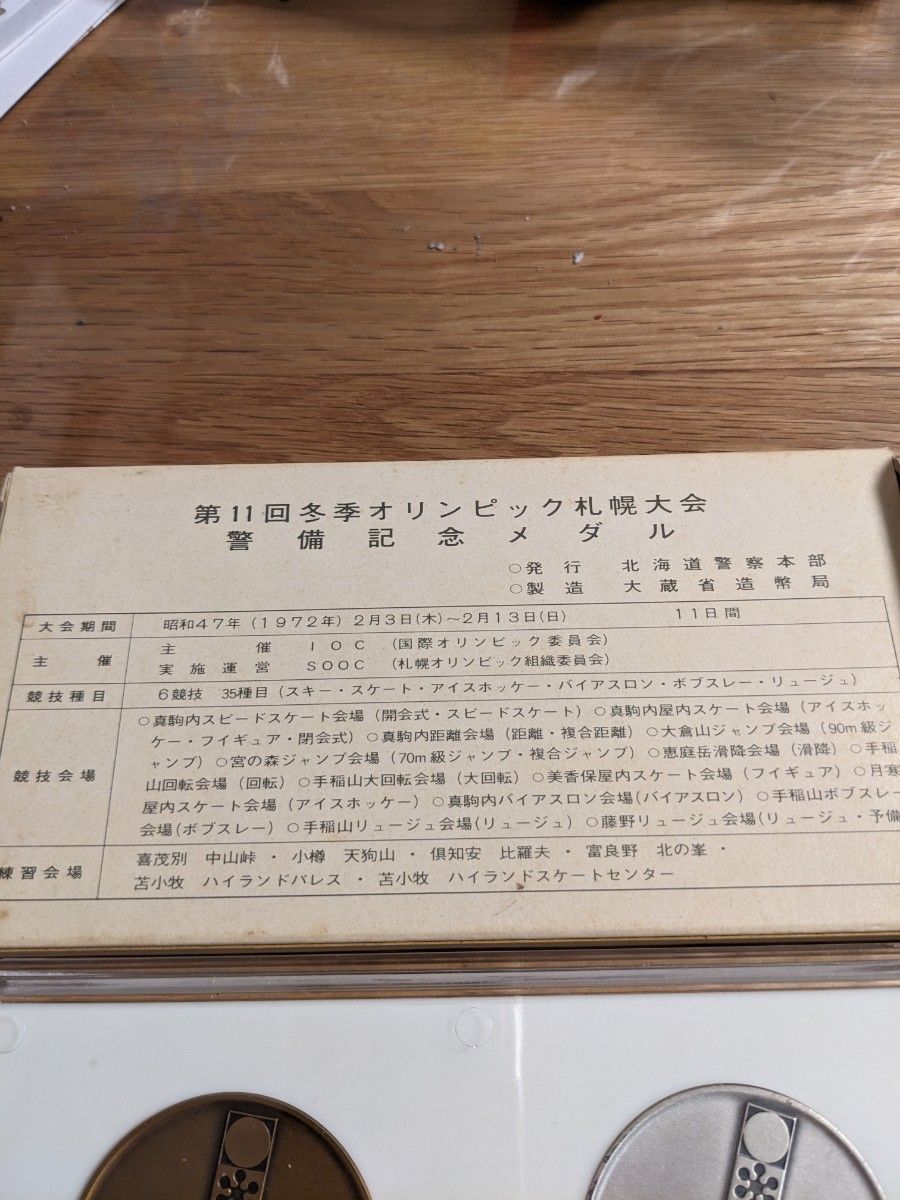 第11回冬季オリンピック札幌大会
警備記念メダル
○発行 北海道警察本部
○製造 大蔵省造幣局
大会期間 昭和47年(1972年)2月3日(木)~2月13日(日) 11日間
主催 主催 IOC (国際オリンピック委員会)
実施運営 SOOC (札幌オリンピック組織委員会)
競技種目 6競技 35種目(スキー・スケート・アイスホッケー・バイアスロン・ボブスレー・リュージュ)
競技会場 ○真駒内スピードスケート会場(開会式・スピードスケート)○真駒内屋内スケート会場(アイスホッ
ケー・フイギュア・閉会式)○真駒内距離会場(距離・複合距離)○大倉山ジャンプ会場(90m級ジ
ャンプ)○宮の森ジャンプ会場(70m級ジャンプ・複合ジャンプ)○恵庭岳滑降会場(滑降)○手稲
山回転会場(回転)○手稲山大回転会場(大回転)○美香保屋内スケート会場(フイギュア)○月寒
屋内スケート会場(アイスホッケー)○真駒内バイアスロン会場(バイアスロン)○手稲山ボブスレー
会場(ボブスレー)○手稲山リュージュ会場(リュージュ)○藤野リュージュ会場(リュージュ・予備
練習会場 喜茂別 中山峠・小樽 天狗山・倶知安 比羅夫・富良野 北の峯・
苫小牧 ハイランドパレス・苫小牧 ハイランドスケートセンター